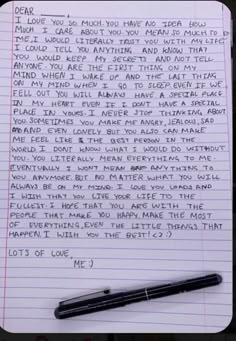 DEAR ________,
I LOVE YOU SO MUCH. YOU HAVE NO IDEA HOW
MUCH I CARE ABOUT YOU. YOU MEAN SO MUCH TO
ME, I WOULD LITERALLY TRUST YOU WITH MY LIFE
I COULD TELL YOU ANYTHING AND KNOW THAT
YOU WOULD KEEP MY SECRETS AND NOT TELL
ANYONE. YOU ARE THE FIRST THING ON MY
MIND WHEN I WAKE UP AND THE LAST THING
ON MY MIND WHEN I GO TO SLEEP. EVEN IF WE
FELL OUT YOU WILL ALWAYS HAVE A SPECIAL PLACE
IN MY HEART EVEN IF I DONT HAVE A SPECIAL
PLACE IN YOURS. I NEVER STOP THINKING ABOUT
YOU. SOMETIMES YOU MAKE ME ANGRY, JEALOUS, SAD
AND EVEN LONELY BUT YOU ALSO CAN MAKE
ME FEEL LIKE THE BEST PERSON IN THE
WORLD. I DONT KNOW WHAT I WOULD DO WITHOUT
YOU. YOU LITERALLY MEAN EVERYTHING TO ME.
EVENTUALLY I WONT MEAN ANYTHING TO
YOU ANYMORE. BUT NO MATTER WHAT YOU WILL
ALWAYS BE ON MY MIND. I LOVE YOU LOADS AND
I WISH THAT YOU LIVE YOUR LIFE TO THE
FULLEST. I HOPE THAT YOU ARE WITH THE
PEOPLE THAT MAKE YOU HAPPY. MAKE THE MOST
OF EVERYTHING, EVEN THE LITTLE THINGS THAT
HAPPEN. I WISH YOU THE BEST! <3 :)
LOTS OF LOVE,
ME :)